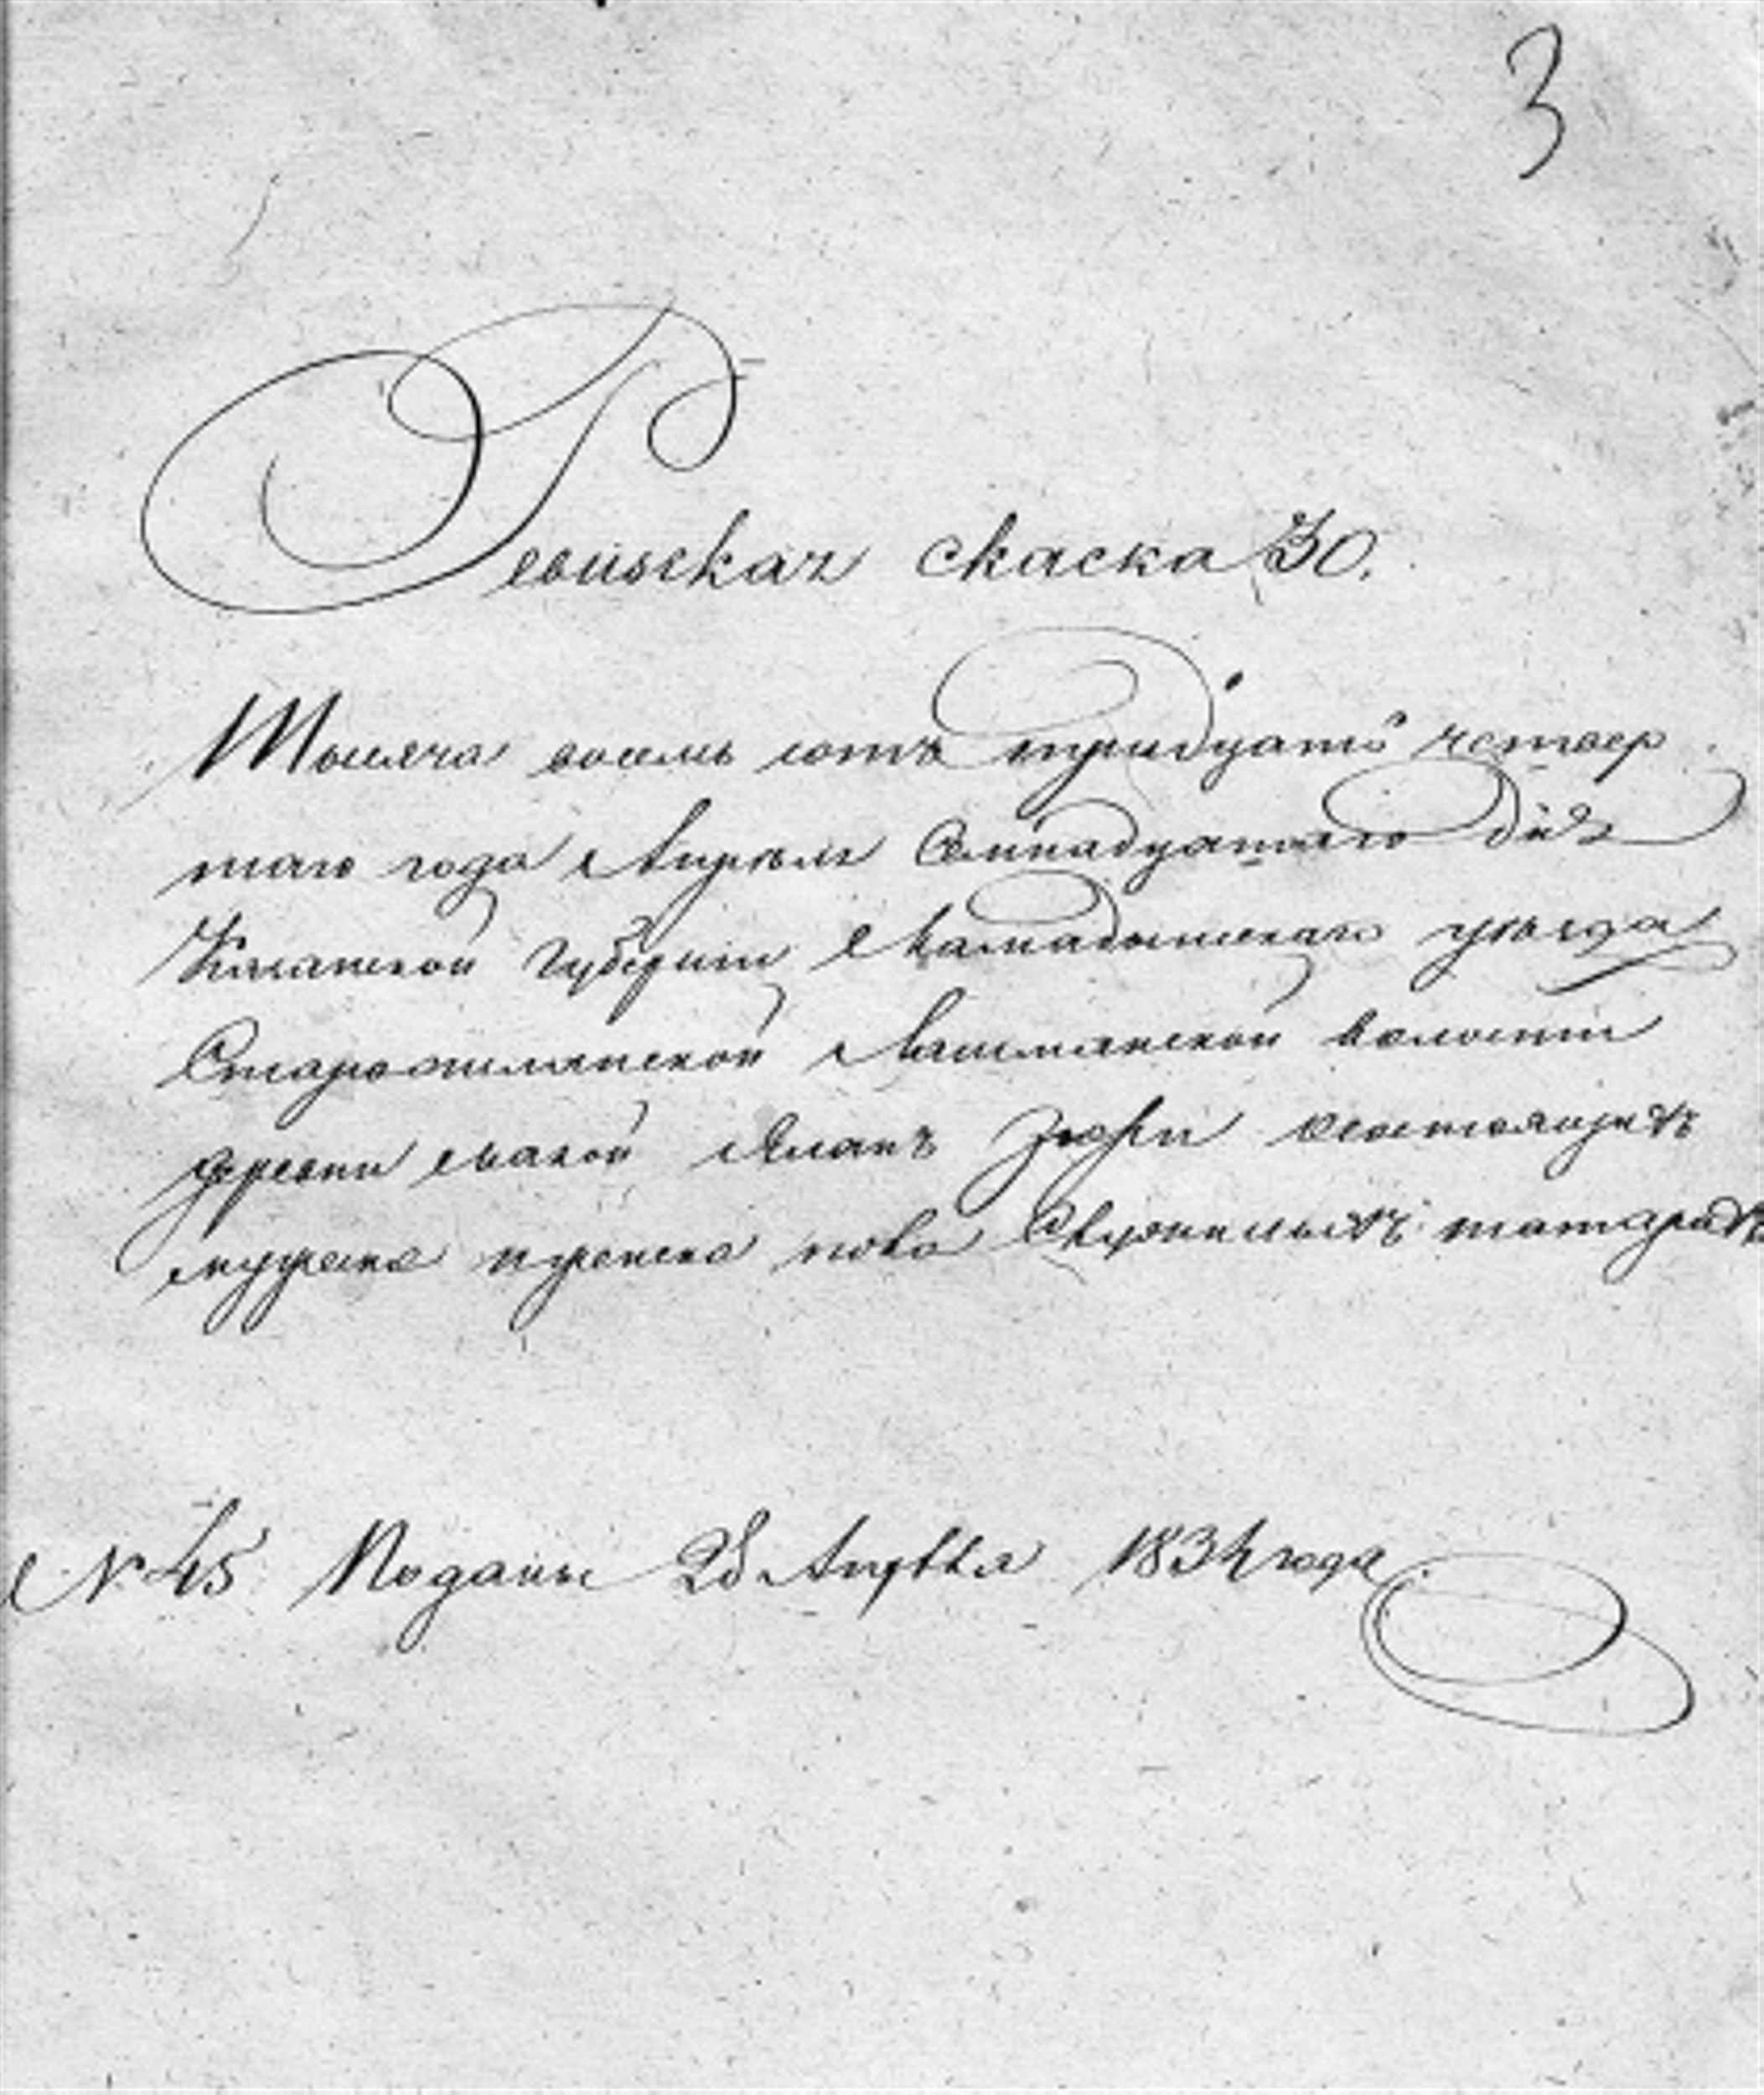 3
Ревизская скаска 30.
Тысяча восемь сотъ тридцать четвер
таго года Апреля Семнадцатаго дня
Казанской Губернии Мамадышскаго уезда
Старожилянской Лашманской волости
деревни малой Сюни состоящихъ
мужеска и женска пола Служилыхъ татарахъ
№ 45 Поданы 28 Апреля 1834 года